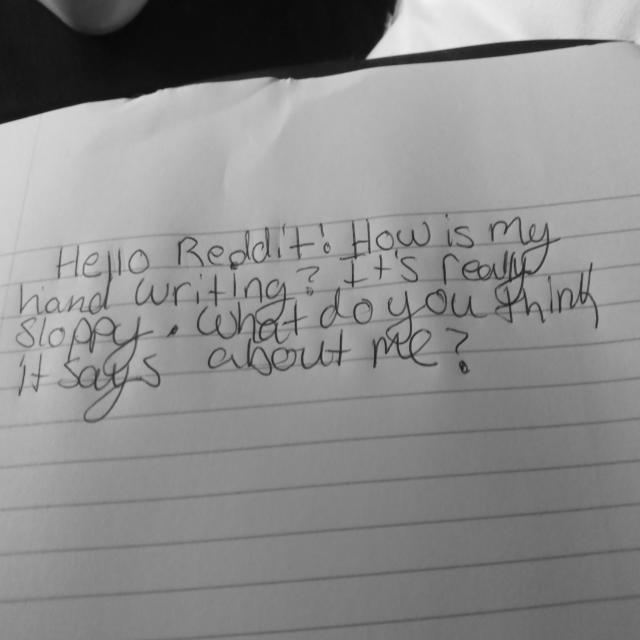 Hello Reddit! How is my
hand writing? It's really
sloppy. What do you think
it says about me?